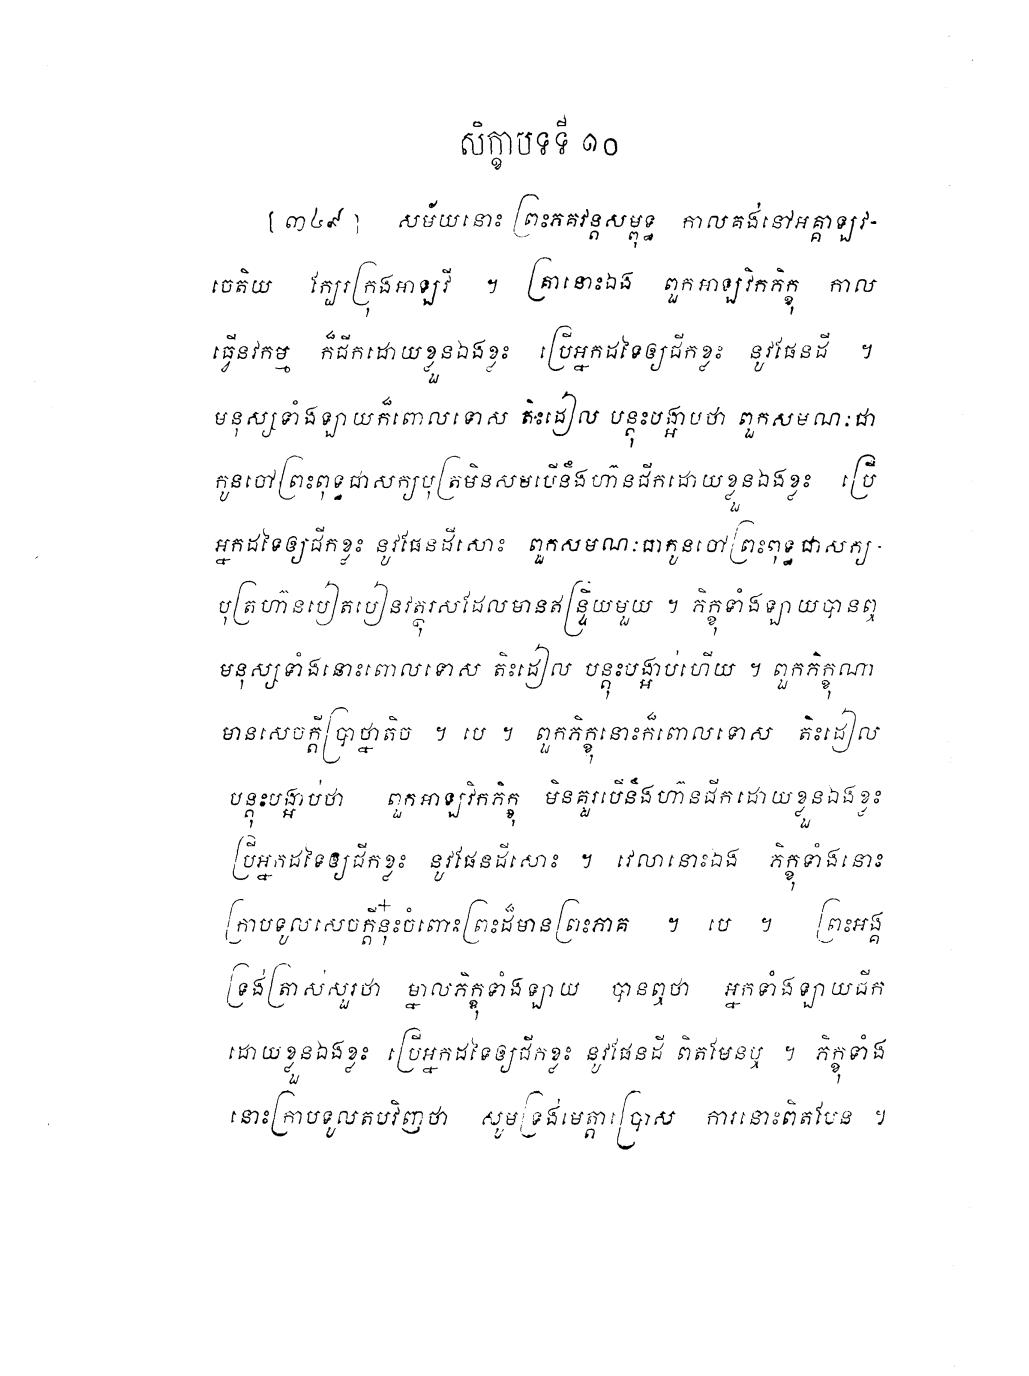 សិក្ខាបទទី ១០
[ ៣៤៩ ] សម័យនោះ ព្រះភគវន្តសម្ពុទ្ធ កាលគង់នៅអគ្គាឡវ-
ចេតិយ ក្បែរក្រុងអាឡវី ។ គ្រានោះឯង ពួកអាឡវិកភិក្ខុ កាល
ធ្វើនវកម្ម ក៏ជីកដោយខ្លួនឯងខ្លះ ប្រើអ្នកដទៃឲ្យជីកខ្លះ នូវផែនដី ។
មនុស្សទាំងឡាយក៏ពោលទោស តិះដៀល បន្តុះបង្អាបថា ពួកសមណៈជា
កូនចៅព្រះពុទ្ធជាសក្យបុត្រមិនសមបើនឹងហ៊ានជីកដោយខ្លួនឯងខ្លះ ប្រើ
អ្នកដទៃឲ្យជីកខ្លះ នូវផែនដីសោះ ពួកសមណៈជាកូនចៅព្រះពុទ្ធជាសក្យ-
បុត្រហ៊ានបៀតបៀនវត្ថុរស់ដែលមានឥន្ទ្រិយមួយ ។ ភិក្ខុទាំងឡាយបានឮ
មនុស្សទាំងនោះពោលទោស តិះដៀល បន្តុះបង្អាប់ហើយ ។ ពួកភិក្ខុណា
មានសេចក្តីប្រាថ្នាតិច ។ បេ ។ ពួកភិក្ខុនោះក៏ពោលទោស តិះដៀល
បន្តុះបង្អាប់ថា ពួកអាឡវិកភិក្ខុ មិនគួរបើនឹងហ៊ានជីកដោយខ្លួនឯងខ្លះ
ប្រើអ្នកដទៃឲ្យជីកខ្លះ នូវផែនដីសោះ ។ វេលានោះឯង ភិក្ខុទាំងនោះ
ក្រាបទូលសេចក្តីនុ៎ះចំពោះព្រះដ៏មានព្រះភាគ ។ បេ ។ ព្រះអង្គ
ទ្រង់ត្រាស់សួរថា ម្នាលភិក្ខុទាំងឡាយ បានឮថា អ្នកទាំងឡាយជីក
ដោយខ្លួនឯងខ្លះ ប្រើអ្នកដទៃឲ្យជីកខ្លះ នូវផែនដី ពិតមែនឬ ។ ភិក្ខុទាំង
នោះក្រាបទូលតបវិញថា សូមទ្រង់មេត្តាប្រោស ការនោះពិតមែន ។